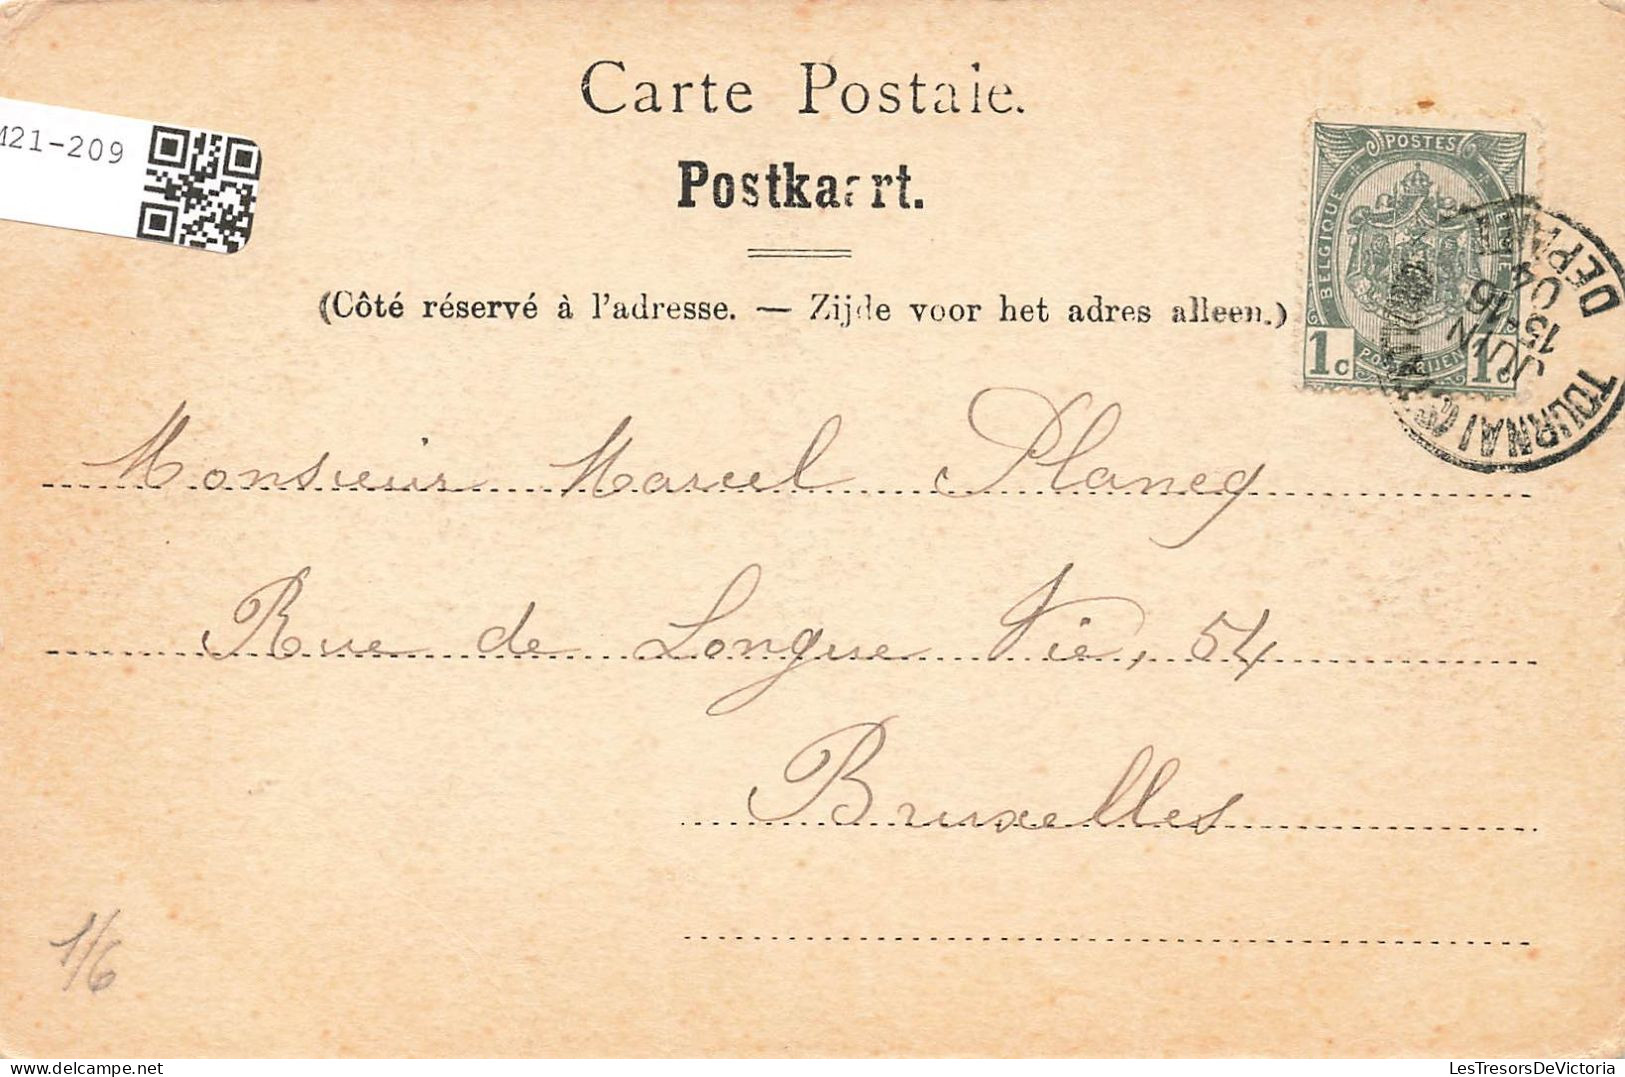 Carte Postale.
M21-209
Postkaart.
(Côté réservé à l'adresse. — Zijde voor het adres alleen.)
POSTES
BELGIQUE
1c 1c
TOURNAI
JUIN
15-16
04
DEPART
Monsieur Marcel Plancq
Rue de Longue Vie, 54
Bruxelles
1/6
LesTresorsDeVictoria